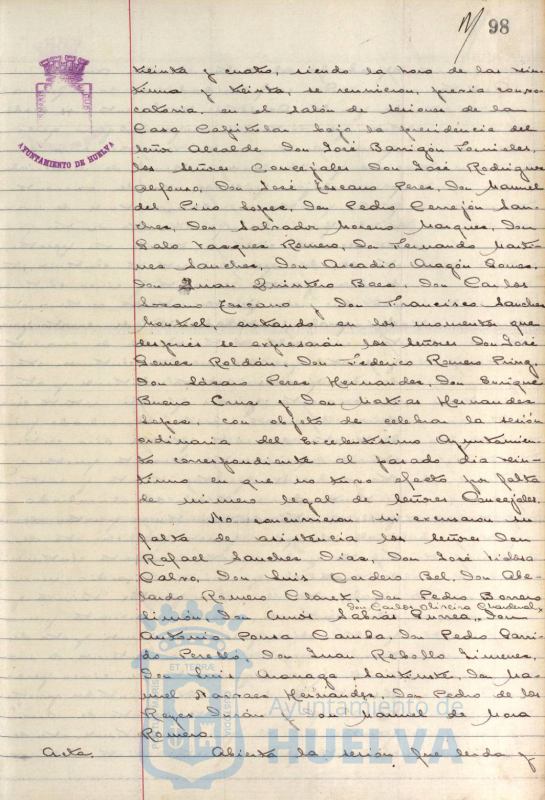 98
AYUNTAMIENTO DE HUELVA
treinta y cuatro, siendo la hora de las vein-
tiuna y treinta, se reunieron, previa convo-
catoria, en el salón de sesiones de la
Casa Capitular bajo la presidencia del
señor Alcalde Don José Barrigón Fornieles,
los señores Concejales Don José Rodriguez
Alfonso, Don José Toscano Perez, Don Manuel
del Pino Lopez, Don Pedro Cerrejón San-
chez, Don Salvador Moreno Marquez, Don
Galo Vazquez Romero, Don Fernando Marti-
nez Sanchez, Don Arcadio Aragón Gomez,
Don Juan Quintero Baez, Don Carlos
Lozano Toscano y Don Francisco Sanchez
Montiel, entrando en los momentos que
después se expresarán los señores Don José
Gomez Roldán, Don Federico Romero
Don Lázaro Perez Hernandez, Don Enrique
Bueno Cruz y Don Matias Hernandez
Lopez, con objeto de celebrar la sesión
ordinaria del Excelentisimo Ayuntamien-
to correspondiente al pasado dia vein-
tiuno en que no tuvo efecto por falta
de número legal de señores Concejales.
No concurrieron ni excusaron su
falta de asistencia los señores Don
Rafael Sanchez Diaz, Don José Tidosa
Calvo, Don Luis Cordero Bel, Don Abe-
lardo Romero Claret, Don Pedro Borrero
Limón, Don Carlos Oliveira Chardenal, Don Amós Sabrás Gurrea, Don
Antonio Pousa Camba, Don Pedro Garri-
do Perelló, Don Juan Rebollo Jimenez,
Don Luis, Don Ma-
nuel Narvaez Hernandez, Don Pedro de los
Reyes y Don Manuel de Mora
Romero.
Acta. Abierta la sesión, fue leida y
ET TERRÆ
Ayuntamiento de
HUELVA